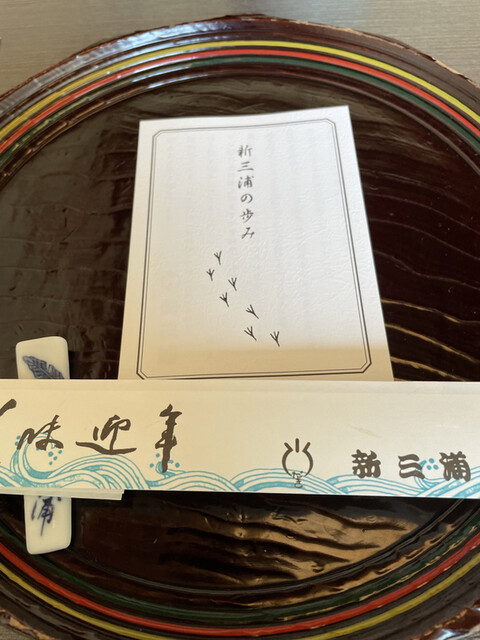 新三浦の歩み
味迎年
新三浦
浦